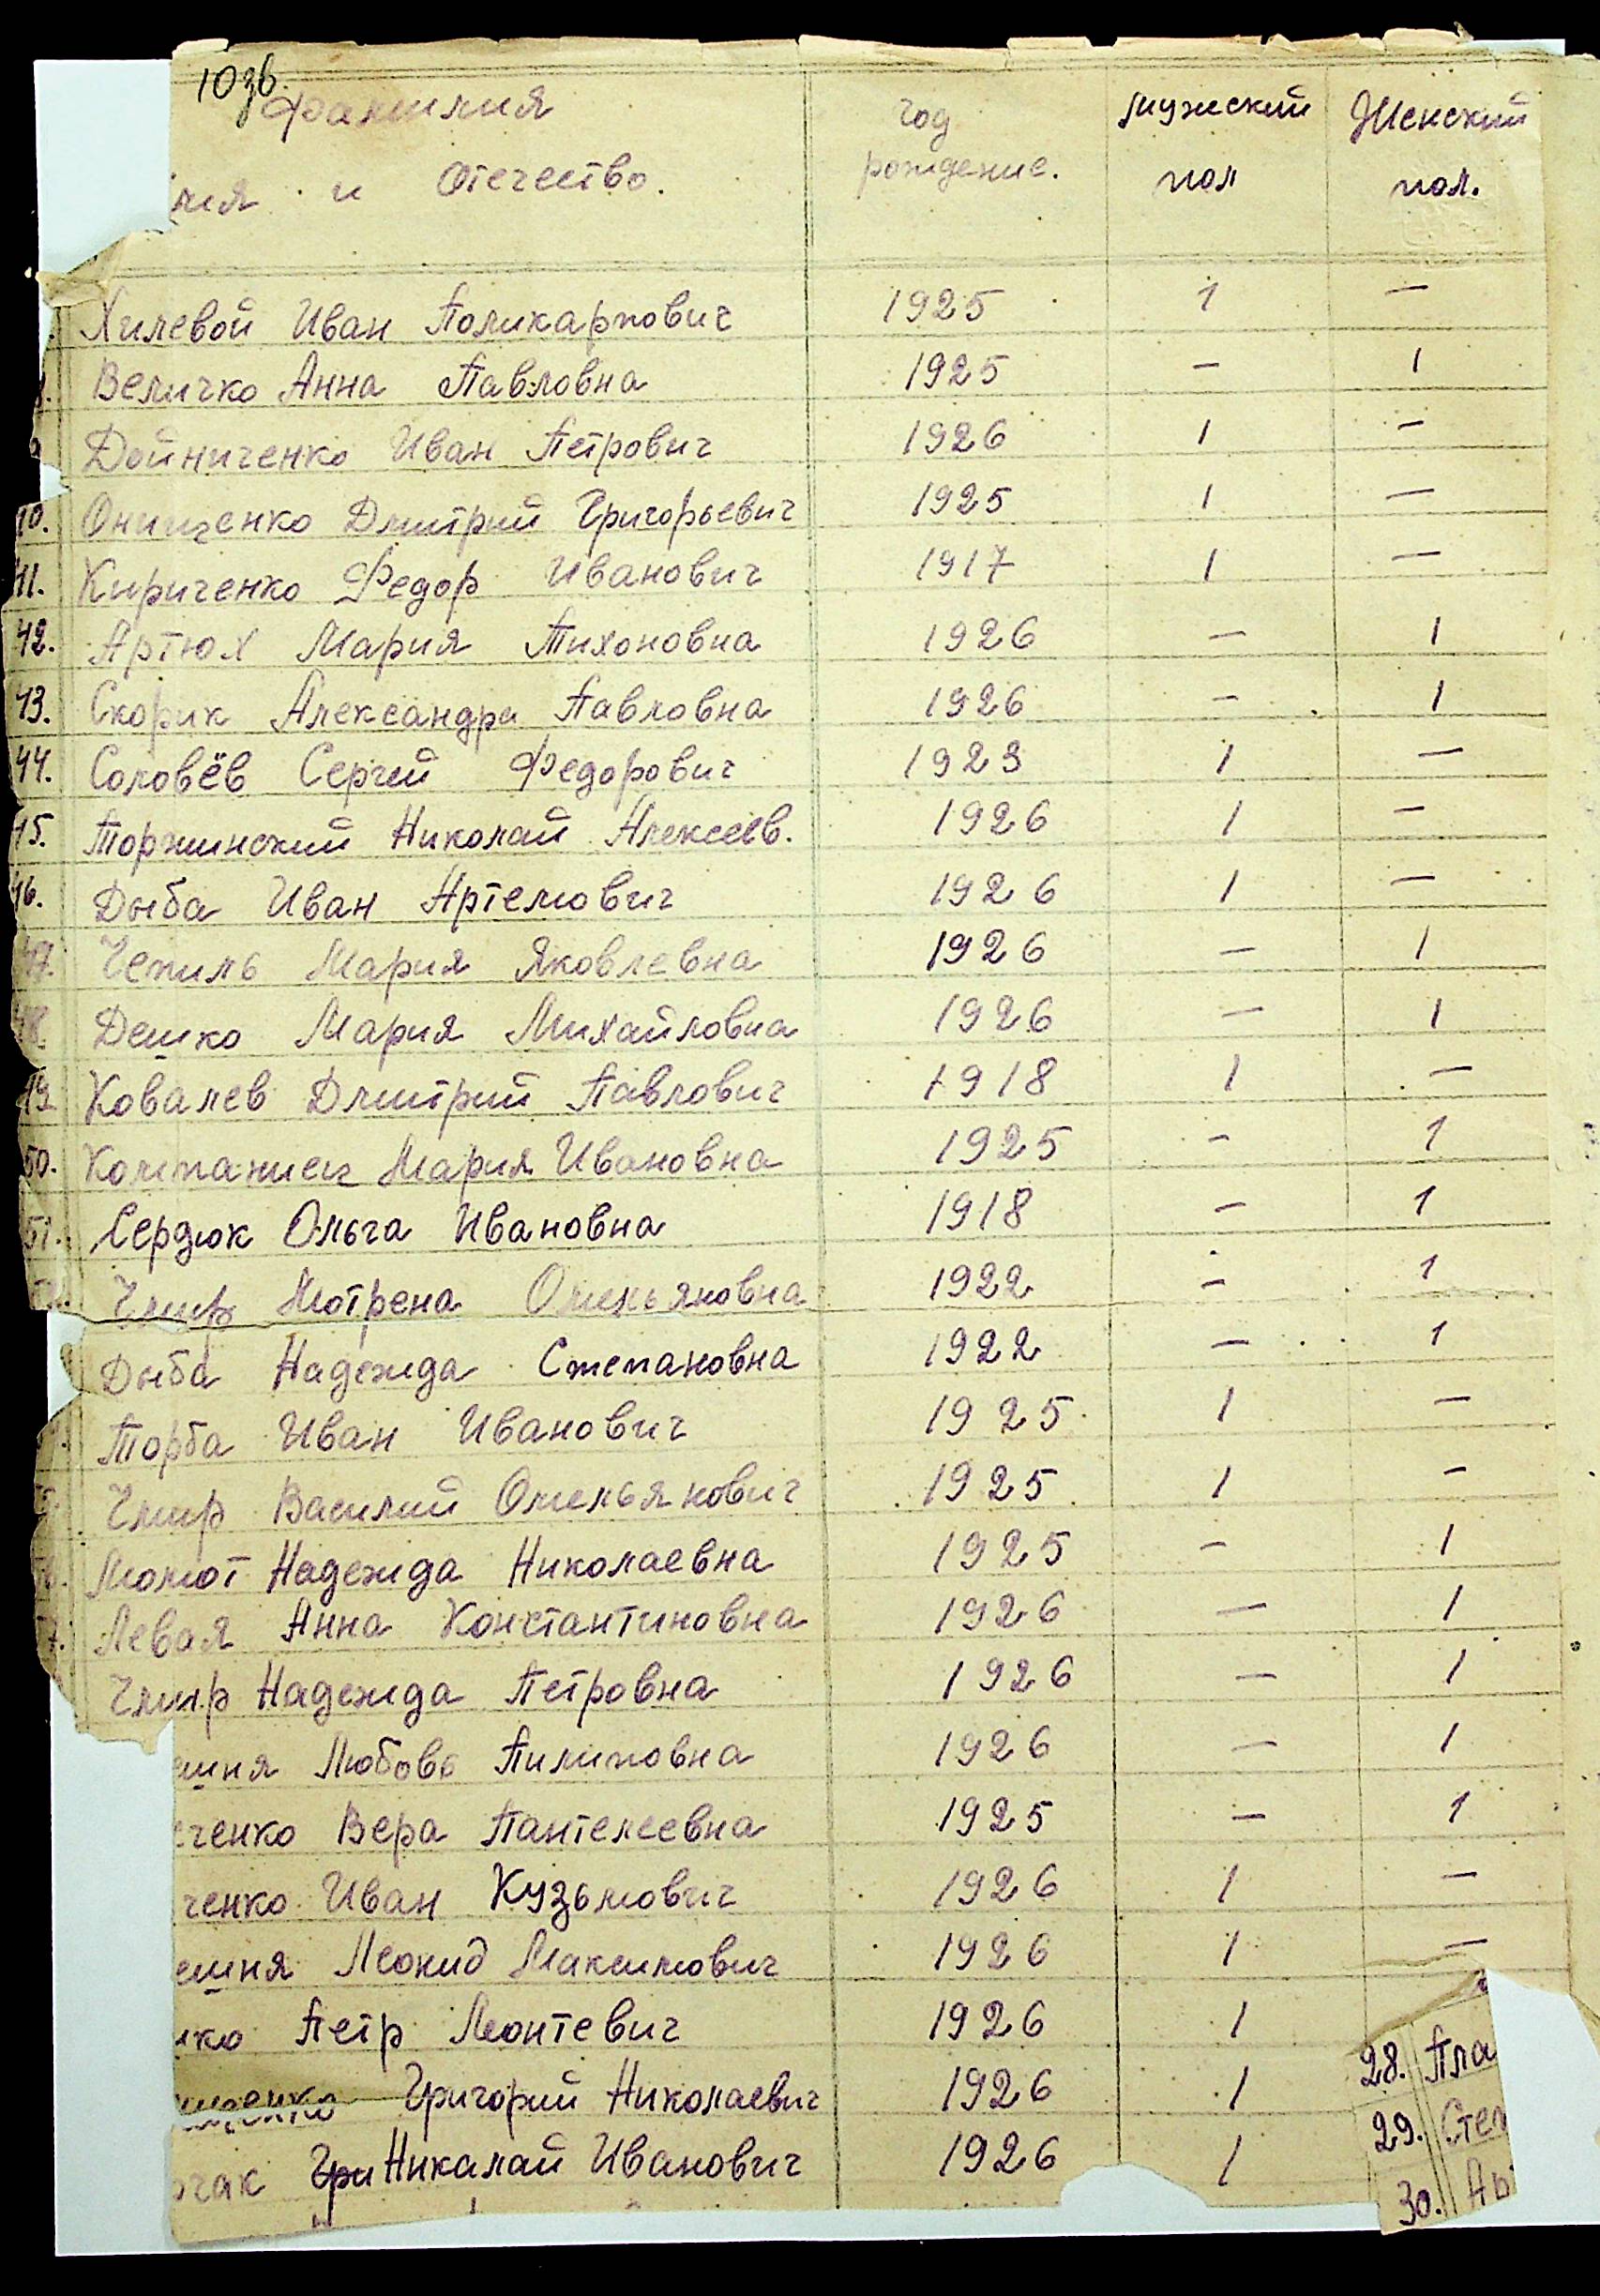 103б.
Фамилия
мия и Отечество.
год
рождение.
мужский
пол
Женский
пол.
Хилевой Иван Поликарпович 1925 1 —
Величко Анна Павловна 1925 — 1
Дойниченко Иван Петрович 1926 1 —
40. Онищенко Дмитрий Григорьевич 1925 1 —
41. Кириченко Федор Иванович 1917 1 —
42. Артюх Мария Тихоновна 1926 — 1
43. Скорик Александра Павловна 1926 — 1
44. Соловьёв Сергей Федорович 1923 1 —
45. Торжинский Николай Алексеев. 1926 1 —
46. Дыба Иван Артемович 1926 1 —
47. Чепиль Мария Яковлевна 1926 — 1
48. Дешко Мария Михайловна 1926 — 1
49. Ковалев Дмитрий Павлович 1918 1 —
50. Компаниец Мария Ивановна 1925 — 1
51. Сердюк Ольга Ивановна 1918 — 1
Чмир Мотрена Омельяновна 1922 — 1
Дыба Надежда Степановна 1922 — 1
Торба Иван Иванович 1925 1 —
Чмир Василий Омельянович 1925 1 —
Момот Надежда Николаевна 1925 — 1
Левая Анна Константиновна 1926 — 1
Чмир Надежда Петровна 1926 — 1
ешня Любовь Пилиповна 1926 — 1
еченко Вера Пантелеевна 1925 — 1
ченко Иван Кузьмович 1926 1 —
ешня Леонид Максимович 1926 1 —
нко Петр Леонтевич 1926 1
ищенко Григорий Николаевич 1926 1
рчак Гри Никалай Иванович 1926 1
28. Пла
29. Степ
30. Ар